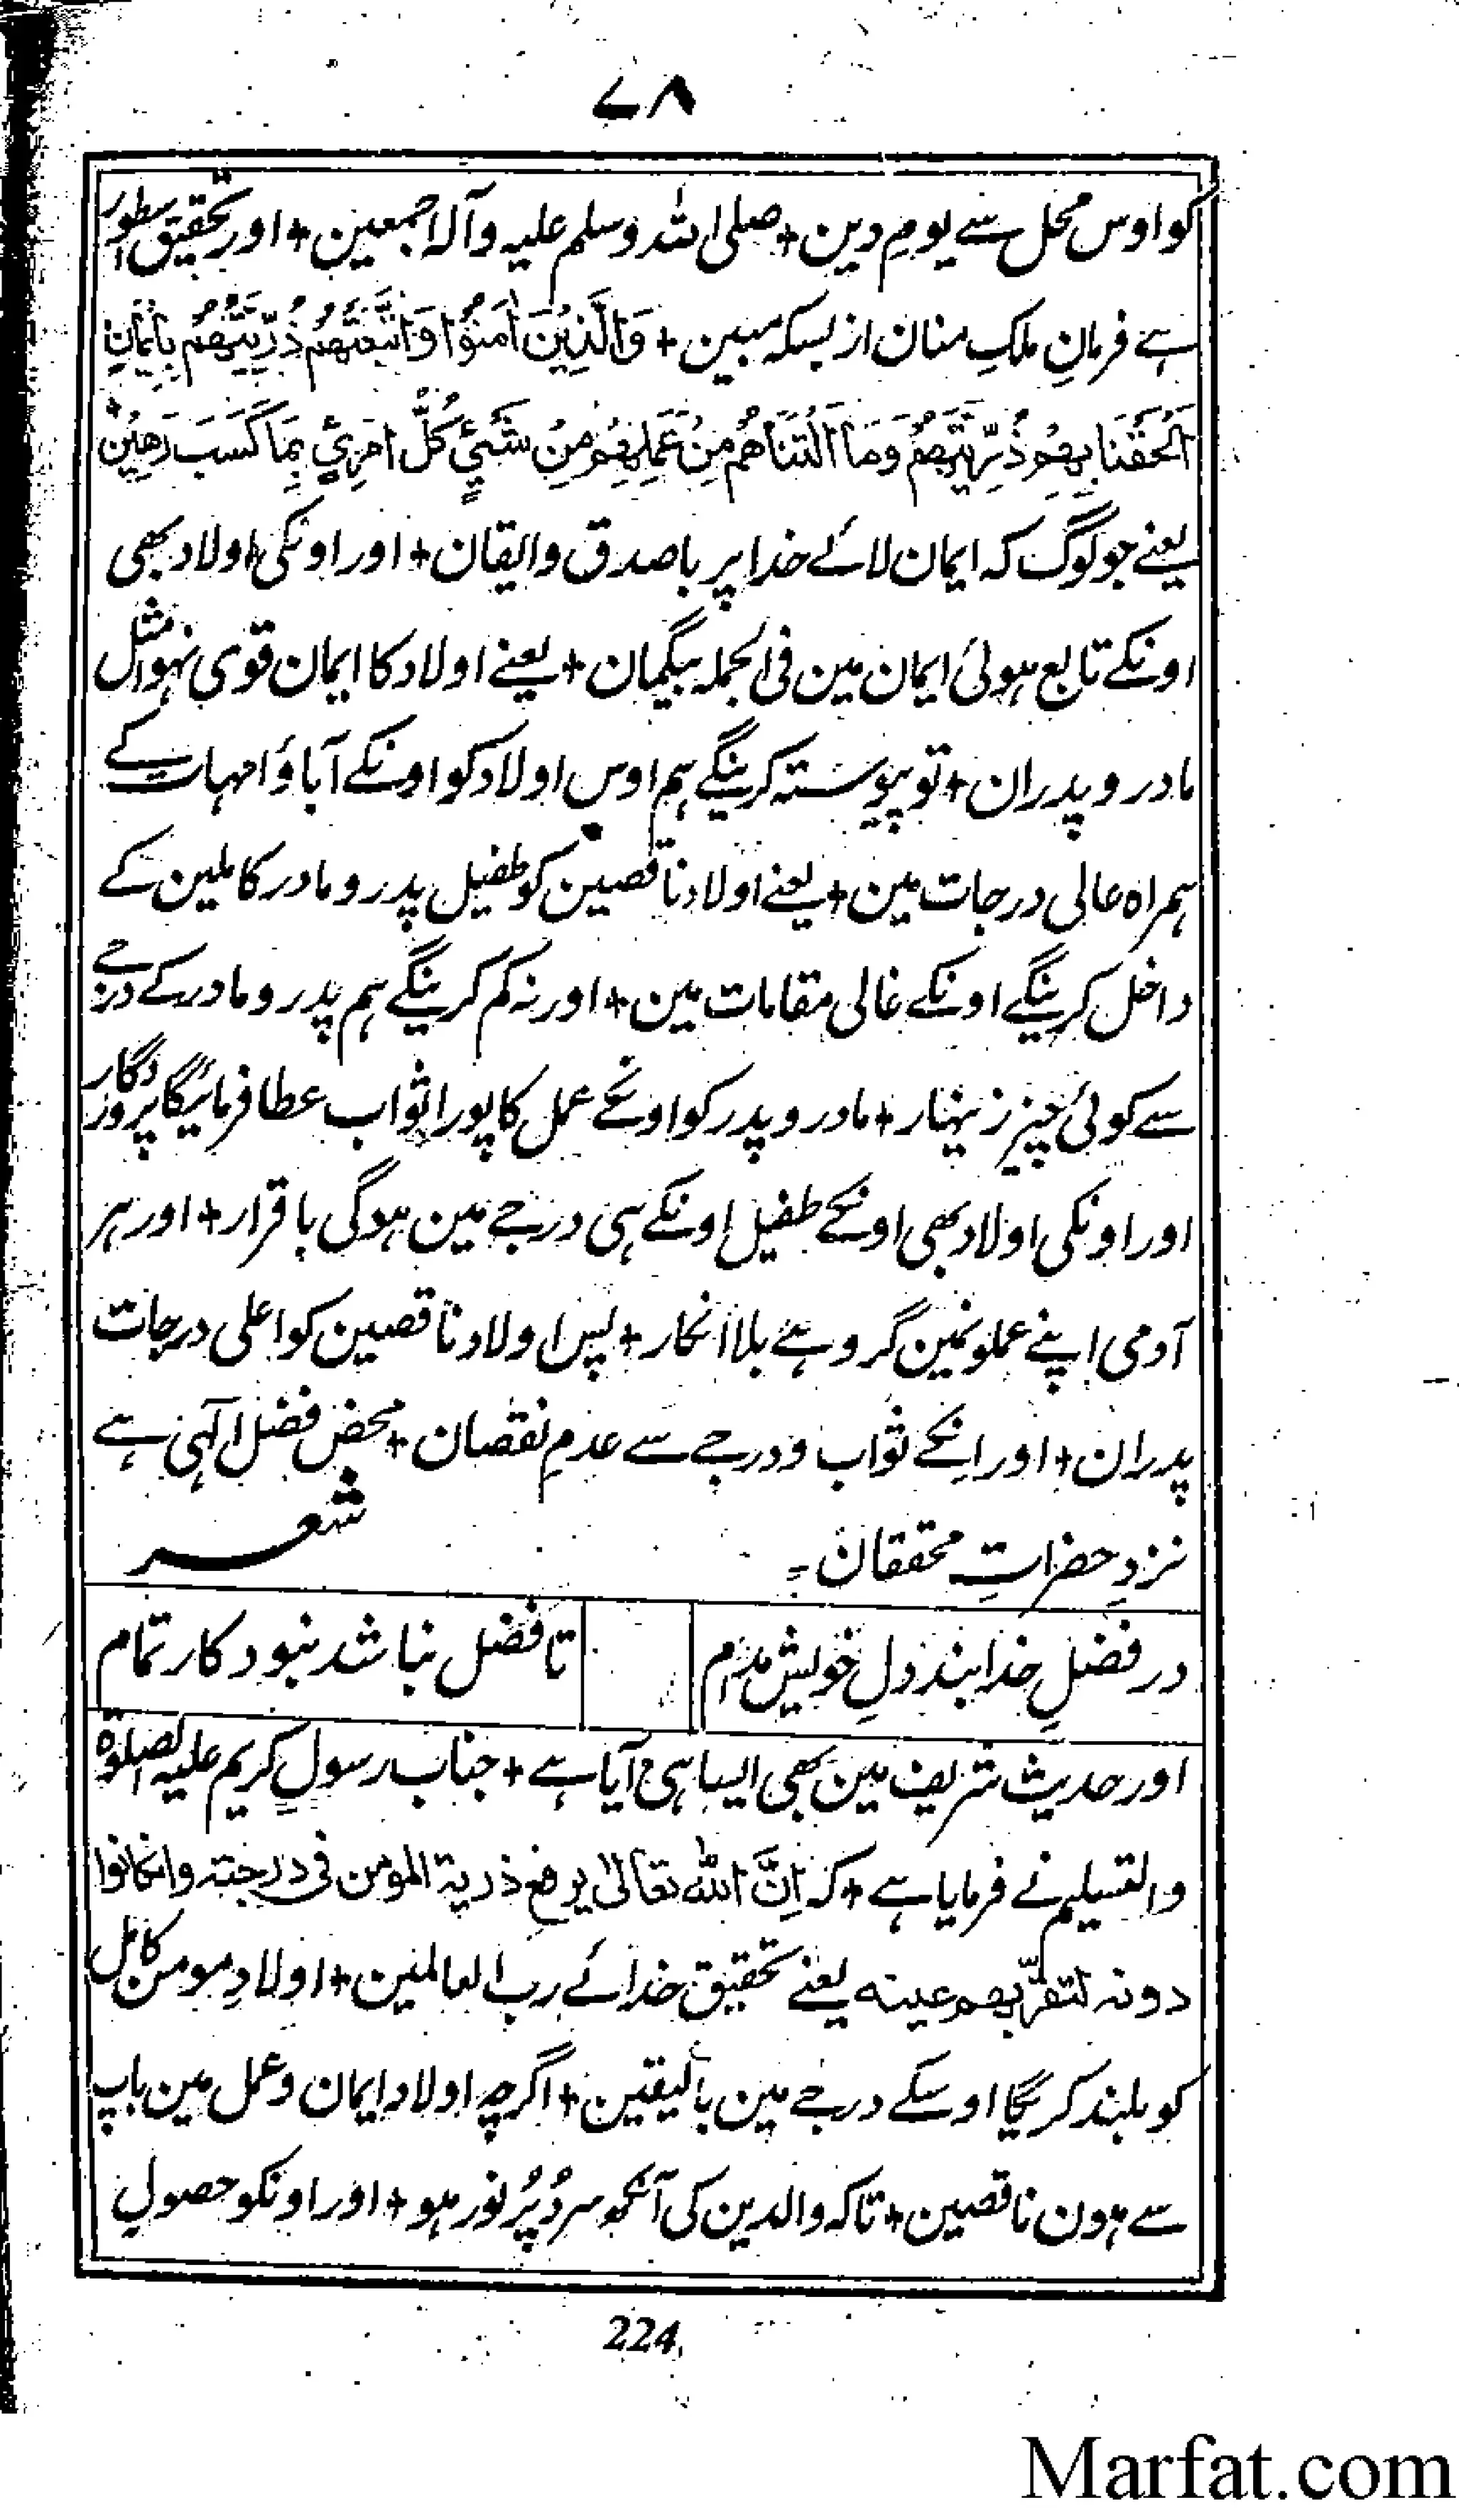 ۷۸
کو اوس محل سے یومِ دین + صلی اللہ وسلم علیہ وآلہ اجمعین + اور تحقیق اسطور
ہے فرمانِ ملکِ منان از بسکہ مبین + وَالَّذِیْنَ اٰمَنُوْا وَاتَّبَعَتْهُمْ ذُرِّیَّتُهُمْ بِاِیْمَانٍ
اَلْحَقْنَا بِهِمْ ذُرِّیَّتَهُمْ وَمَا اَلَتْنَاهُمْ مِنْ عَمَلِهِمْ مِنْ شَیْءٍ كُلُّ امْرِئٍ بِمَا كَسَبَ رَهِیْنٌ
یعنے جو لوگ کہ ایمان لائے خدا پر باصدق وایقان + اور اونکی اولاد بھی
اونکے تابع ہوئی ایمان مین فی الجملہ بیگمان + یعنے اولاد کا ایمان قوی نہو مثل
مادر و پدران + تو پیوستہ کرینگے ہم اوس اولاد کو اونکے آبا وامہات کے
ہمراہ عالی درجات مین + یعنے اولاد ناقصین کو طفیل پدر و مادر کاملین کے
داخل کرینگے اونکے عالی مقامات مین + اور نہ کم کرینگے ہم پدر و مادر کے درجے
سے کوئی چیز زینہار + مادر و پدر کو اونکے عمل کا پورا ثواب عطا فرمائیگا پروردگار
اور اونکی اولاد بھی اونکے طفیل اونکے ہی درجے مین ہوگی باقرار + اور ہر
آدمی اپنے عملونمین گرو ہے بلا انکار + پس اولاد ناقصین کو اعلی درجات
پدران + اور انکے ثواب و درجے سے عدمِ نقصان + محض فضل الٰہی ہے
نزدِ حضراتِ محققان ۔ شعر
در فضلِ خدا بند دلِ خویش مدام تا فضل نباشد نبود کار تمام
اور حدیث شریف مین بھی ایسا ہی آیا ہے + جناب رسولِ کریم علیہ الصلوۃ
والتسلیم نے فرمایا ہے + کہ اِنَّ اللّٰہ تعالیٰ یرفع ذریۃ المؤمن فی درجتہ وانکانوا
دونہ لتقرّبھم عینہ یعنے تحقیق خدائے رب العالمین + اولادِ مومن کامل
کو بلند کریگا اوسکے درجے مین بالیقین + اگرچہ اولاد ایمان وعمل مین باپ
سے ہون ناقصین + تاکہ والدین کی آنکھ سرد پُر نور ہو + اور اونکو حصولِ
224
Marfat.com